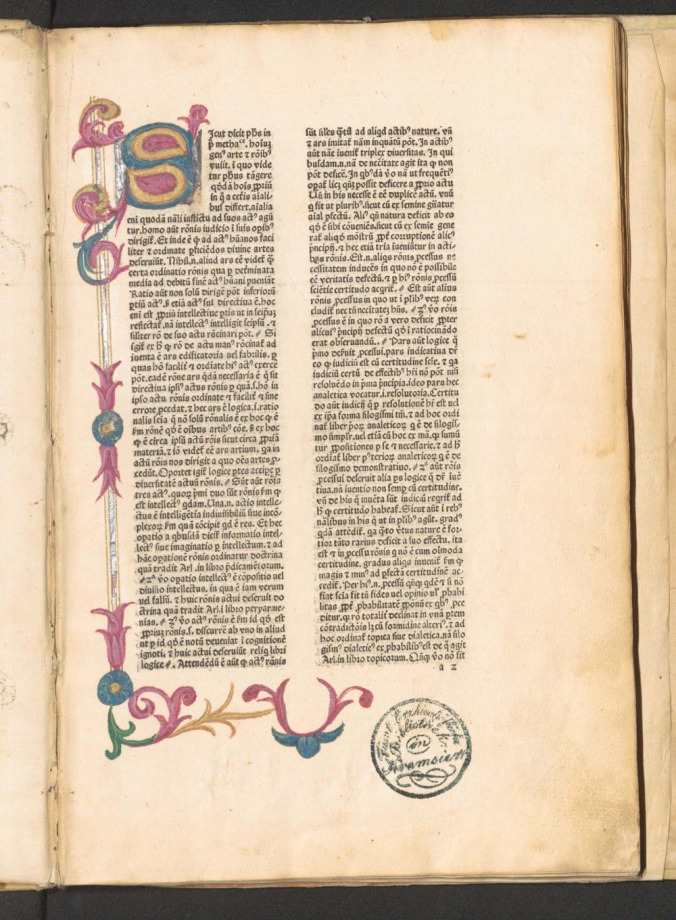 Icut dicit ph̄s in
p̄ metha.ᶜᵉ. hoīuʒ
genꝰ arte ⁊ rōibꝰ
viuit. ī quo vide
tur ph̄us tāgere
qd̄dā hoīs ꝓpriū
in q̄ a cet̄is aīali
bus differt. aīalia
eni quodā nāli īstīctu ad suos actꝰ agū
tur. homo aūt rōnis iudicio ī suis oꝑibꝰ
dirigit̄. Et inde ē ꝙ ad actꝰ hūanos faci
liter ⁊ ordinate ꝑficiēdos diuīse artes
deseruiūt. Nihil.n. aliud ars eē videt̄ q̄
certa ordinatio rōnis qua ꝑ det̄minata
media ad debitū finē actꝰ hūani ꝑueniāt
Ratio aūt non solū dirigē pōt inferioꝝ
ꝑtiū actꝰ. s̄ etiā actꝰ sui directiua ē. hoc
eni est ꝓpriū intellectiue ꝑtis ut in seipsaʒ
reflectat̄. nā intellectꝰ intelligit seipsū. ⁊
sil̄iter rō de suo actu rōcinari pōt. Si
igit̄ ex h̄ ꝙ rō de actu manꝰ rōcinat̄ ad
iuenta ē ars edificatoria uel fabrilis. ꝑ
quas hō facilit̄ ⁊ ordīate hīꝰ actꝰ exercē
pōt. eadē rōne ars q̄dā necessaria ē q̄ sit
directiua ipsiꝰ actus rōnis ꝑ quā.s. hō in
ipso actu rōnis ordinate ⁊ facilit̄ ⁊ sine
errore ꝓcedat. ⁊ hec ars ē logica.i. ratio
nalis scīa q̄ nō solū rōnalis ē ex hoc ꝙ ē
s̄m rōnē qd̄ ē oībus artibꝰ cōē. s̄ ex hoc
ꝙ ē circa ipsū actū rōis sicut circa ꝓpriā
materiā. ⁊ iō videt̄ eē ars artium. qa in
actū rōnis nos dirigit a quo oēs artes ꝓ
cedūt. Oportet igit̄ logice ꝑtes accipē ꝑ
diuersitatē actuū rōnis. Sūt aūt rōis
tres actꝰ. quoꝝ pͥmi duo sūt rōnis s̄m ꝙ
est intellectꝰ qdam. Una.n. actio intelle
ctus ē intelligētia indiuisibiliū siue incō-
plexoꝝ s̄m quā cōcipit qd ē res. Et hec
oꝑatio a qbusdā dicit̄ informatio intel-
lectꝰ siue imaginatio ꝑ intellectum. ⁊ ad
hāc oꝑationē rōnis ordinatur doctrina
quā tradit Arl. in libro p̄dicamētorum.
2ᵃ vō oꝑatio intellectꝰ ē cōpositio uel
diuisio intellectus. in qua ē iam verum
uel falsū. ⁊ huic rōnis actui deseruit do
ctrina quā tradit Arl. ī libro peryarme-
nias. 2ꝰ vō actꝰ rōnis ē s̄m id qd̄ est
ꝓpriuʒ rōnis.s. discurrē ab vno in aliud
ut ꝑ id qd̄ ē notū deueniat ī cognitionē
ignoti. ⁊ huic actui deseruiūt reliqͥ libri
logice. Attendēdū ē aūt ꝙ actꝰ rōnis
sūt siles q̄tū ad aliqd actibꝰ nature. vn̄
⁊ ars imitat̄ nām inquātū pōt. In actibꝰ
aūt nāe iuenit̄ triplex diuersitas. In qui
busdam.n. nā de necītate agit ita ꝙ non
pōt deficē. In qbꝰdā vō nā ut frequētiꝰ
oꝑat̄ licʒ qn̄qʒ possit deficere a ꝓprio actu
Un̄ in his necesse ē eē duplicē actū. vnū
q̄ sit ut pluribꝰ. sicut cū ex semine gn̄atur
aīal ꝑfectū. Aliꝰ qn̄ natura deficit ab eo
qd̄ ē sibi cōueniēs. sicut cū ex semīe gene
rat̄ aliqd mōstrū ꝓpt̄ corruptionē alicꝰ
pͥncipij. ⁊ hec etiā tria iueniūtur in acti-
bꝰ rōnis. Est.n. aliqs rōnis ꝓcessus ne
cessitatem inducēs in quo nō ē possibile
eē veritatis defectū. ⁊ ꝑ hͥ rōnis ꝓcessū
sciētie certitudo acqrit̄. Est aūt alius
rōnis ꝓcessus in quo ut ī plibꝰ veꝝ con
cludit̄ nec tn̄ necitatē hn̄s. 2ꝰ vō rōis
ꝓcessus ē in quo rō a vero deficit ꝓpter
alicuiꝰ pͥncipij defectū qd̄ ī ratiocinādo
erat obseruandū. Pars aūt logice q̄
pͥmo deseruit ꝓcessui. pars indicatiua dr̄
eo ꝙ iudiciū est cū certitudine scīe. ⁊ qa
iudiciū certū de effectibꝰ hr̄i nō pōt nisi
resoluēdo in pͥma pͥncipia. ideo pars hec
analetica vocatur.i. resolutoria. Certitu
do aūt iudicij q̄ ꝑ resolutionē hr̄ est uel
ex ip̄a forma silogismi tm̄. ⁊ ad hoc ordi
nat̄ liber pͥoꝝ analeticoꝝ q̄ ē de silogis-
mo simpl̄r. uel etiā cū hoc ex mā. qa sumū
tur ꝓpositiones ꝑ se ⁊ necessarie. ⁊ ad h̄
ordiat̄ liber pͦsterioꝝ analeticoꝝ q̄ ē de
silogismo demonstratiuo. 2ᵒ aūt rōis
ꝓcessui deseruit alia ps logice q̄ dr̄ iuē
tiua. nā iuentio non semp̄ cū certitudine.
vn̄ de his q̄ inuēta sūt iudiciū reqrit̄ ad
h̄ ꝙ certitudo habeat̄. Sicut aūt ī rebꝰ
nālibus in his q̄ ut in plibꝰ agūt. gradꝰ
qͥdā attēdit̄. qa q̄to v̄tus nature ē for-
tior tāto rarius deficit a suo effectu. ita
est ⁊ in ꝓcessu rōnis q nō ē cum oīmoda
certitudine. gradus aliqs iuenit̄ s̄m ꝙ
magis ⁊ minꝰ ad ꝑfectā certitudinē ac
cedit̄. Per hͥꝰ.n. ꝓcessū qn̄qʒ qdē ⁊ si nō
fiat scīa fit tn̄ fides uel opinio ul̄ ꝓbabi
litas ꝓpt̄ ꝓbabilitatē ꝓpōnū ex qbꝰ ꝓce
ditur. qa rō totalit̄ declinat in vnā ꝑtem
cōtradictōis lʒ cū formidine alteriꝰ. ⁊ ad
hoc ordinat̄ topica siue dialetica. nā silo
gismꝰ dialeticꝰ ex ꝓbabilibꝰ est de q̄ agit
Arl. in libro topicorum. Qn̄qʒ vō nō fit
a 2
Fürstl. Erzbischöfliche
Bibliothek
in